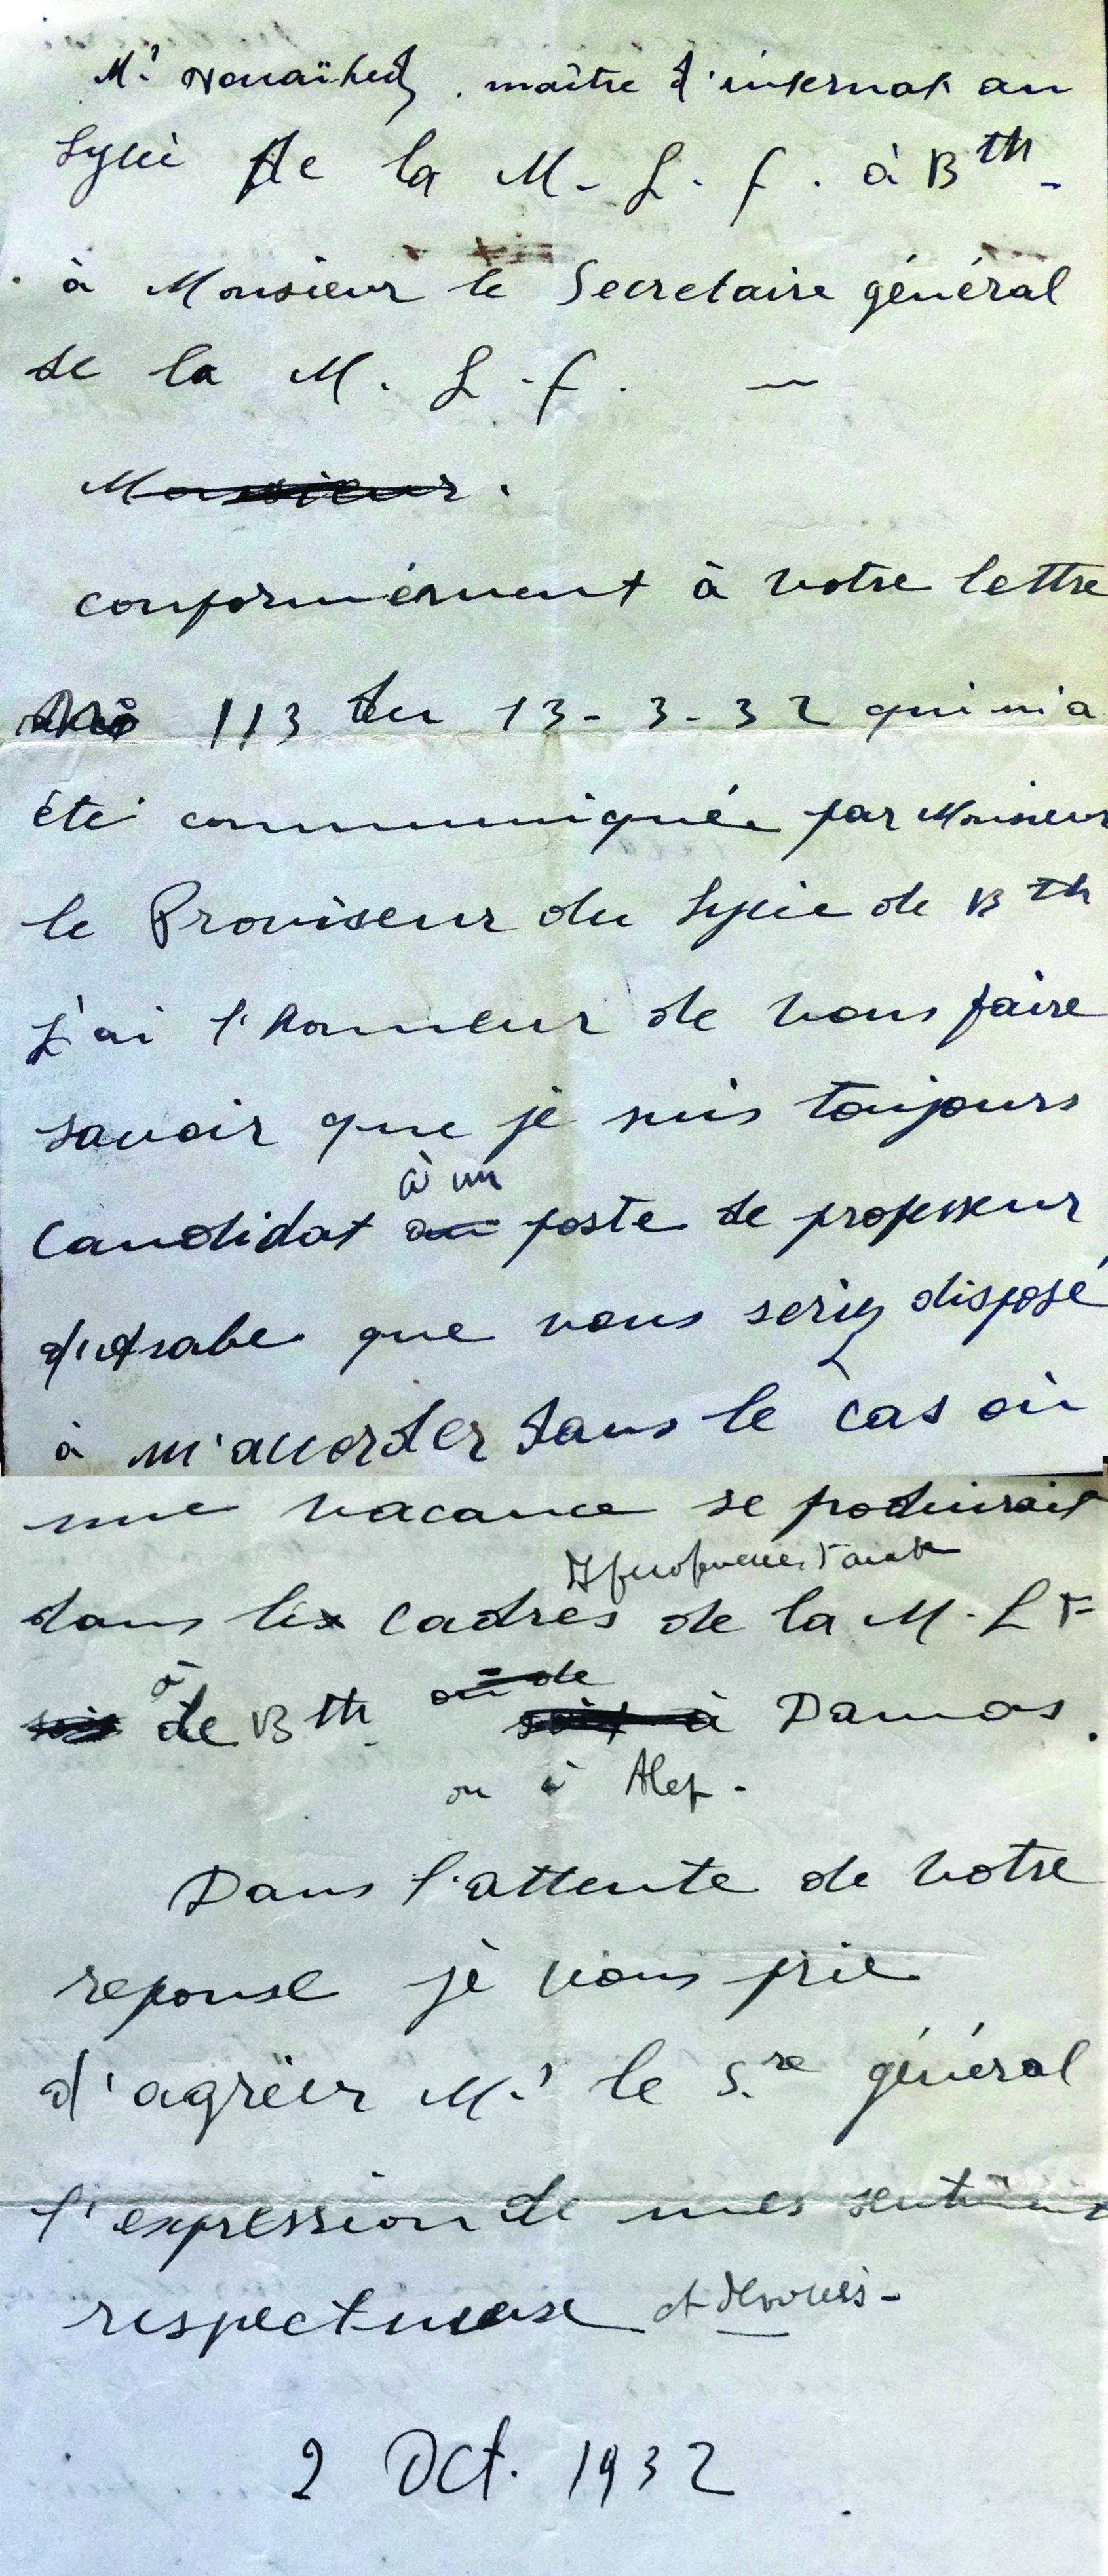 Mr Nouaïhed, maître d'internat au
Lycée de la M. L. F. à Bth.
à Monsieur le Secretaire général
de la M. L. F. —
Monsieur.
conformément à votre lettre
113 du 13-3-32 qui m'a
été communiquée par Monsieur
le Proviseur du Lycée de Bth
j'ai l'honneur de vous faire
savoir que je suis toujours
à un
Candidat au poste de professeur
d'Arabe que vous seriez disposé
à m'accorder dans le cas où
une vacance se produirait
dans les cadres de la M. L F
à ou de
soit de Bth. soit à Damas.
ou à Alep.
Dans l'attente de votre
reponse je vous prie
d'agréer Mr le S.re général
l'expression de mes sentiments
respectueuse et dévoués.
2 Oct. 1932